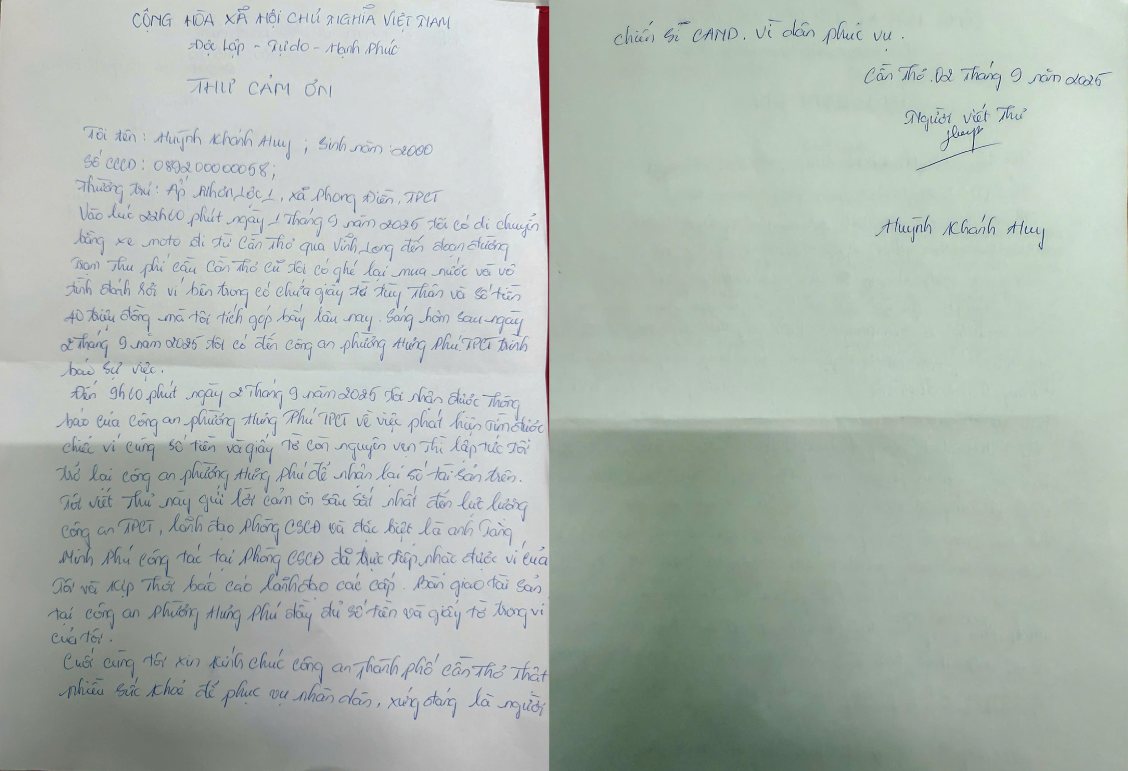 CỘNG HÒA XÃ HỘI CHỦ NGHĨA VIỆT NAM
Độc Lập - Tự do - Hạnh Phúc
THƯ CẢM ƠN
Tôi tên : Huỳnh Khánh Huy ; Sinh năm : 2000
Số CCCD : 089200000058 ;
Thường trú : Ấp Nhơn Lộc 1, xã Phong Điền, TPCT
Vào lúc 22h40 phút ngày 1 tháng 9 năm 2025 tôi có di chuyển
bằng xe moto đi từ Cần Thơ qua Vĩnh Long đến đoạn đường
trạm thu phí cầu Cần Thơ cũ tôi có ghé lại mua nước và vô
tình đánh rơi ví bên trong có chứa giấy tờ tùy thân và số tiền
40 triệu đồng mà tôi tích góp bấy lâu nay. Sáng hôm sau ngày
2 tháng 9 năm 2025 tôi có đến công an phường Hưng Phú TPCT trình
báo sự việc.
Đến 9h40 phút ngày 2 tháng 9 năm 2025 tôi nhận được thông
báo của công an phường Hưng Phú TPCT về việc phát hiện tìm được
chiếc ví cùng số tiền và giấy tờ còn nguyên vẹn thì lập tức tôi
trở lại công an phường Hưng Phú để nhận lại số tài sản trên.
Tôi viết thư này gửi lời cảm ơn sâu sắt nhất đến lực lượng
công an TPCT, lãnh đạo Phòng CSCĐ và đặc biệt là anh Tăng
Minh Phú công tác tại Phòng CSCĐ đã trực tiếp nhặc được ví của
tôi và kịp thời báo cáo lãnh đạo các cấp. Bàn giao tài sản
tại công an phường Hưng Phú đầy đủ số tiền và giấy tờ trong ví
của tôi.
Cuối cùng tôi xin kính chúc công an thành phố Cần Thơ thật
nhiều sức khoẻ để phục vụ nhân dân, xứng đáng là người
chiến sĩ CAND. Vì dân phục vụ.
Cần Thơ. 02 tháng 9 năm 2025
Người viết thư
Huỳnh Khánh Huy